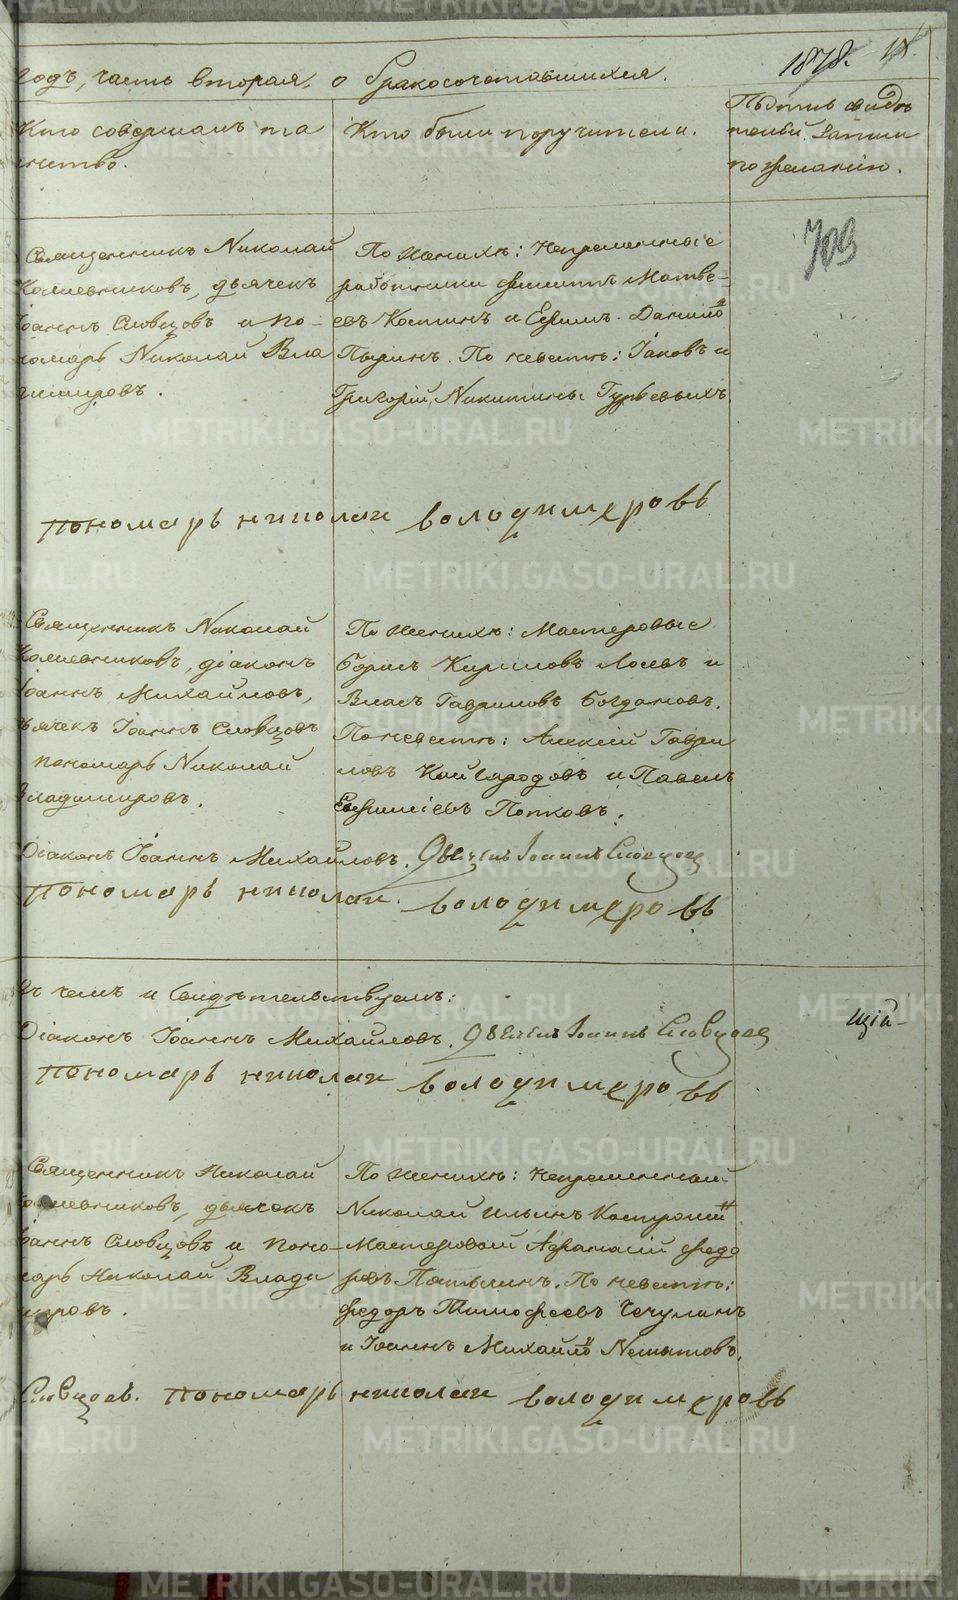 годъ, часть вторая, о бракосочетавшихся.
1878. 18
Кто совершалъ та
инство.
Кто были поручители.
Подпись свидѣ
телей записи
по желанію.
703
Священникъ Николай
дьячекъ
Іоаннъ Словцовъ и по-
номарь Николай Вла
димировъ.
По женихѣ: Непременные
работники Филиппъ Матве-
евъ Костинъ и Ефимъ Данил
По невѣстѣ: Іаковъ и
Григорій Никитины Гурьевыхъ.
пономарь николаи володимеровъ
Священникъ Николай
діаконъ
Іоаннъ Михайловъ,
дьячекъ Іоаннъ Словцовъ
пономарь Николай
Владимировъ.
По женихѣ: Мастеровые
Борисъ Кириловъ Лосевъ и
Власъ Гавриловъ Богдановъ.
По невестѣ: Алексій Гаври
ловъ Кайгародовъ и Павелъ
Евфиміевъ Попковъ.
Діаконъ Іоаннъ Михайловъ. Дьячекъ Іоаннъ Словцовъ
пономарь николаи володимеровъ
въ чемъ и свидѣтельствуемъ:
Діаконъ Іоаннъ Михайловъ. Дьячекъ Іоаннъ Словцовъ
щій
пономарь николаи володимеровъ
Священникъ Николай
дьячекъ
Іоаннъ Словцовъ и поно-
марь Николай Влади
мировъ.
По женихѣ: Непременный
Николай Ильинъ
Мастеровой Афанасій Федо
ровъ По невестѣ:
Федоръ Тимофеевъ Чечулинъ
и Іоаннъ Михайло
Словцовъ. пономарь николаи володимеровъ
METRIKI.GASO-URAL.RU